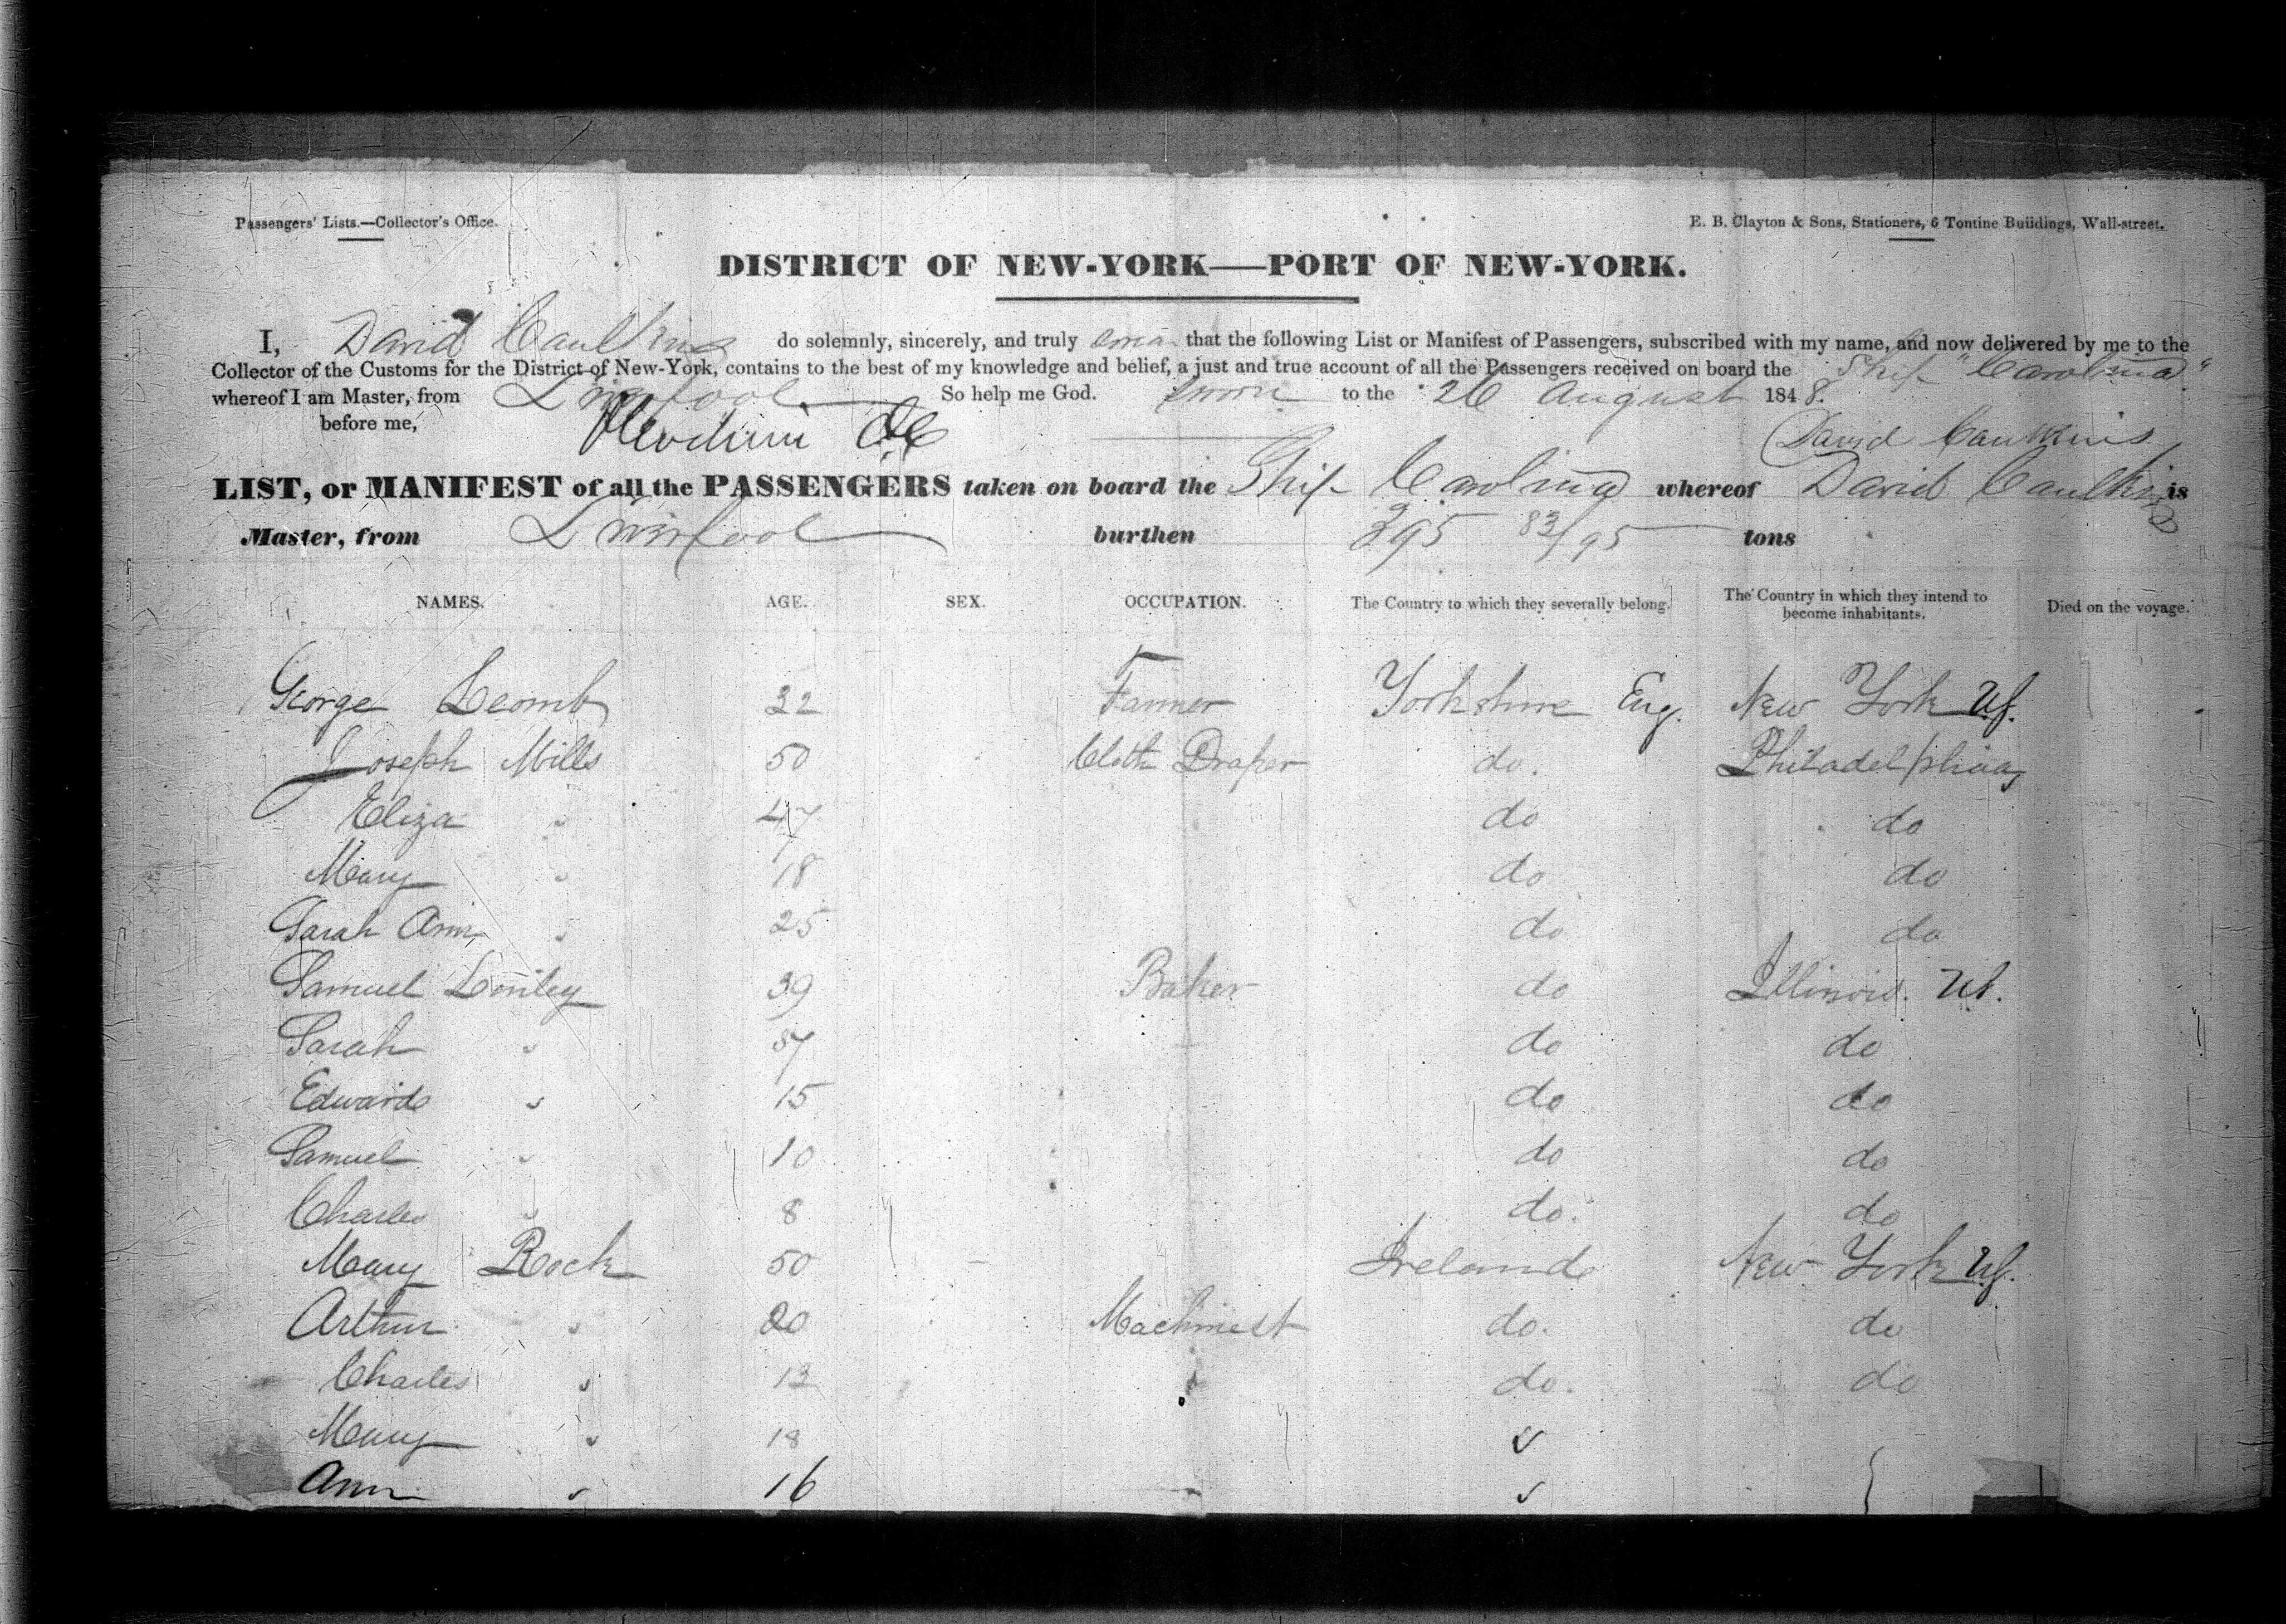 Passengers' Lists.—Collector's Office.
E. B. Clayton & Sons, Stationers, 6 Tontine Buildings, Wall-street.
DISTRICT OF NEW-YORK—PORT OF NEW-YORK.
I, David Caulkins do solemnly, sincerely, and truly that the following List or Manifest of Passengers, subscribed with my name, and now delivered by me to the
Collector of the Customs for the District of New-York, contains to the best of my knowledge and belief, a just and true account of all the Passengers received on board the Ship "Carolina"
whereof I am Master, from Liverpool So help me God. Sworn to the 26 August 1848.
before me, David Caulkins
LIST, or MANIFEST of all the PASSENGERS taken on board the Ship Carolina whereof David Caulkins is
Master, from Liverpool burthen 395 83/95 tons
NAMES. AGE. SEX. OCCUPATION. The Country to which they severally belong. The Country in which they intend to become inhabitants. Died on the voyage.
George 32 Farmer Yorkshire Eng. New York Us.
Joseph Mills 50 Cloth Draper do. Philadelphia
Eliza " 47 do do
Mary " 18 do do
Sarah Ann " 25 do do
Samuel 39 Baker do Illinois. Us.
Sarah " 37 do do
Edward " 15 do do
Samuel " 10 do do
Charles " 8 do. do
Mary Rock 50 Ireland New York Us.
Arthur " 20 Machinest do. do
Charles " 13 do. do
Mary " 18 "
Ann " 16 "